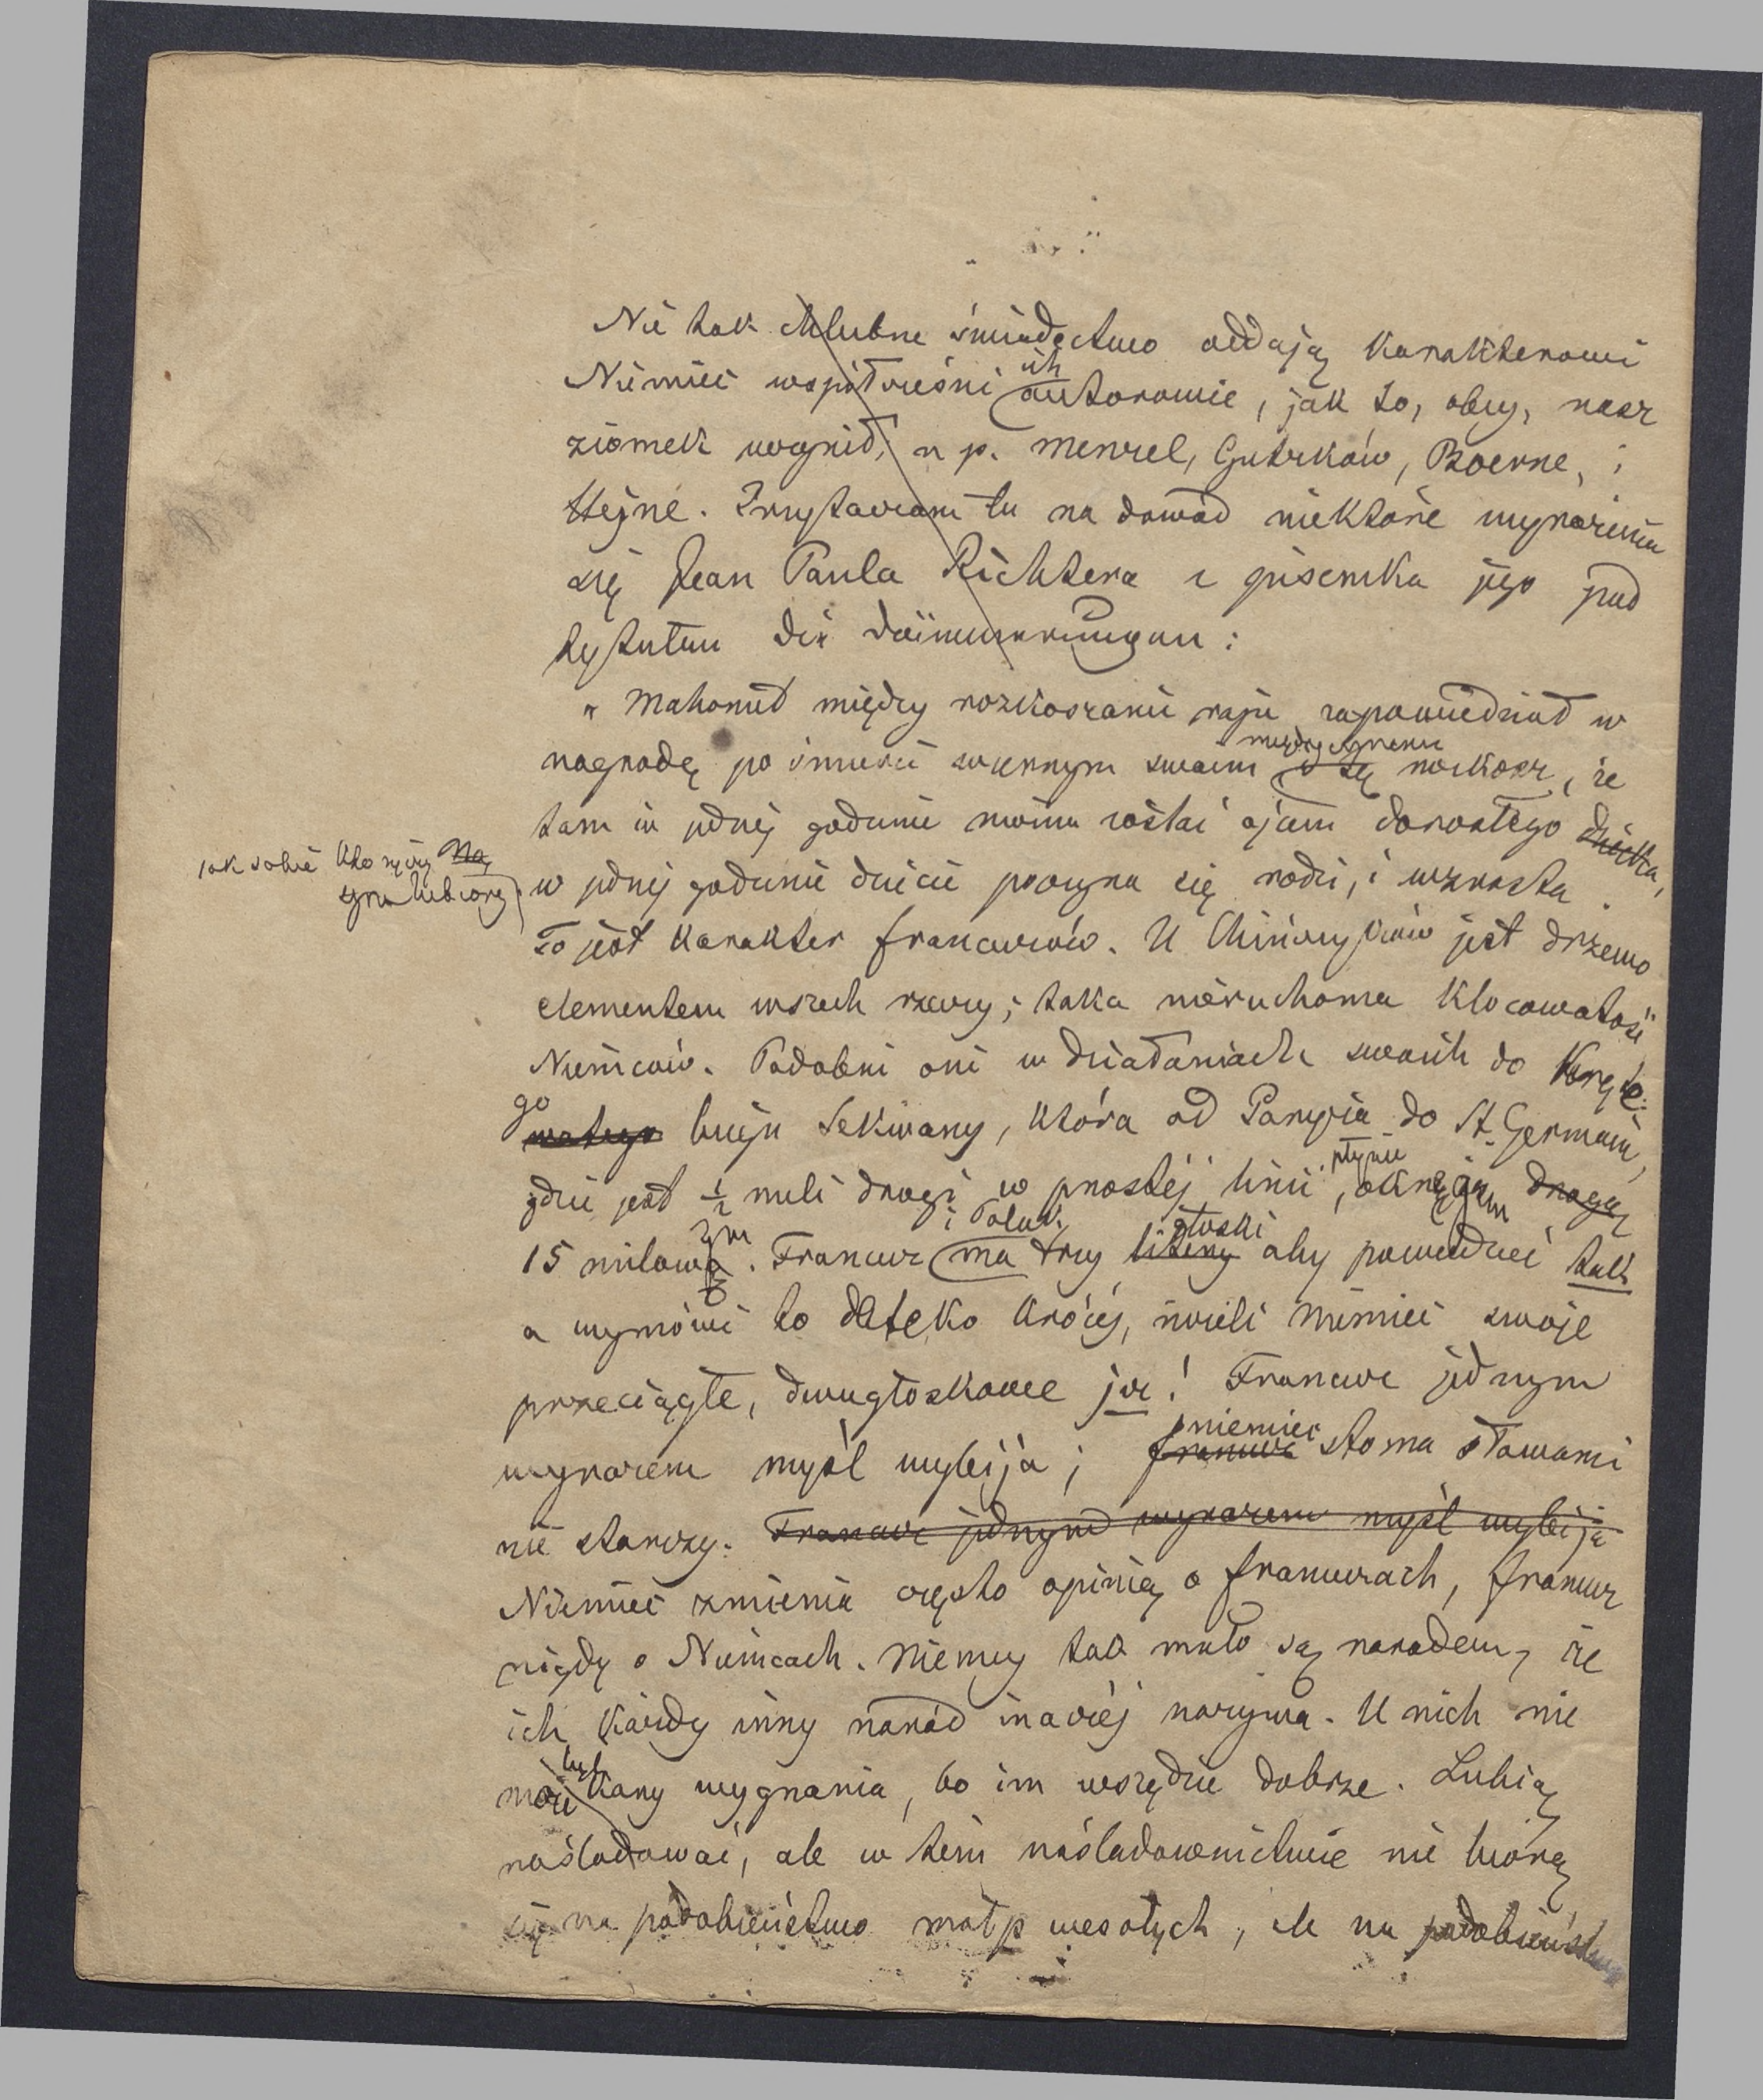 Nie tak chlubne świadectwo oddają karakterowi
Niemiec współcześni ich autorowie, jak to, obcy, nasz
ziomek uczynił, n p. Menzel, Gutzków, Boerne, i
Hejne. Przystaczam tu na dowód niektóre wyrażenia
się Jean Paula Richtera z pisemka jego pod
tytułem die Dämmerungen:
"Mahomed między rozkoszami raju zapowiedział w
nagrodę po śmierci wiernym swoim i tę między innemi rozkosz, że
tam w jednej godzinie można zostać ojcem dorosłego dziecka,
jak sobie kto życzy na
syna lubiony
w jednej godzinie dziecie poczyna się rodzi, i wzrasta.
To jest karakter francuzów. U Chińczyków jest drzewo
elementem wszech rzeczy; taka nieruchoma klocowatość
Niemców. Podobni oni w działaniach swoich do kręte-
go watego biegu Sekwany, która od Paryża do St. Germain,
gdzie jest ½ mili drogi w prostej linii, płynie okrążem drogą
15 milowym. Francuz i Polak ma trzy litery głoski aby powiedzieć tak
a wymówi to daleko krócéj, niżeli Niemiec swoje
przeciągłe, dwugłoskowe ja! Francuz jednym
wyrazem myśl wybija; francuz niemiec stoma słowami
nie starczy. Francuz jednym wyrazem myśl wybija
Niemiec zmienia często opinią o francuzach, francuz
nigdy o Niemcach. Niemcy tak mało są narodem, że
ich każdy inny naród inaczéj nazywa. U nich nie
może być kary wygnania, bo im wszędzie dobrze. Lubią
naśladować, ale w tém naśladownictwie nie biorą
się na podobieństwo małp wesołych, ale na podobieństwo